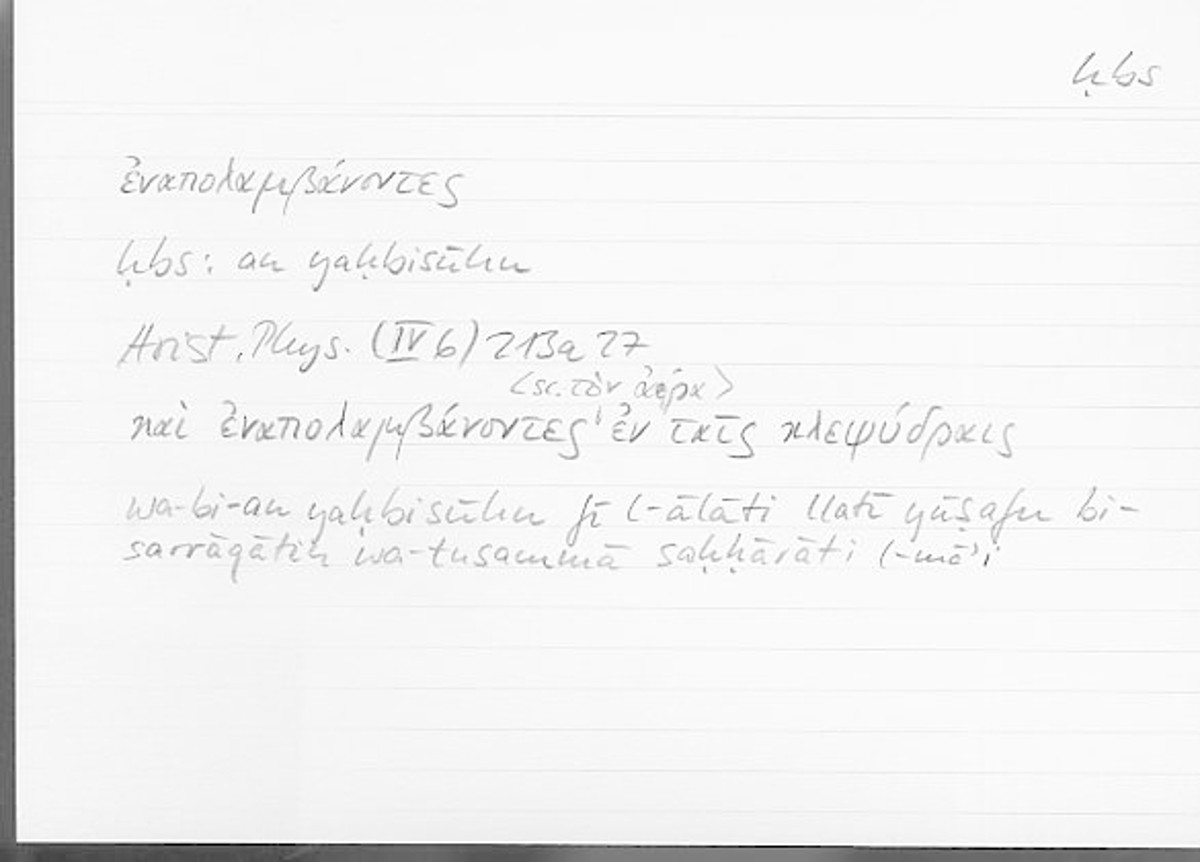 ḥbs
ἐναπολαμβάνοντες
ḥbs: an yaḥbisūhu
Arist. Phys. (IV 6) 213a 27
<sc. τὸν ἀέρα>
καὶ ἐναπολαμβάνοντες ἐν ταῖς κλεψύδραις
wa-bi-an yaḥbisūhu fī l-ālāti llatī yūṣafu bi-
sarrāqātin wa-tusammā saḥḥārāti l-māʾi